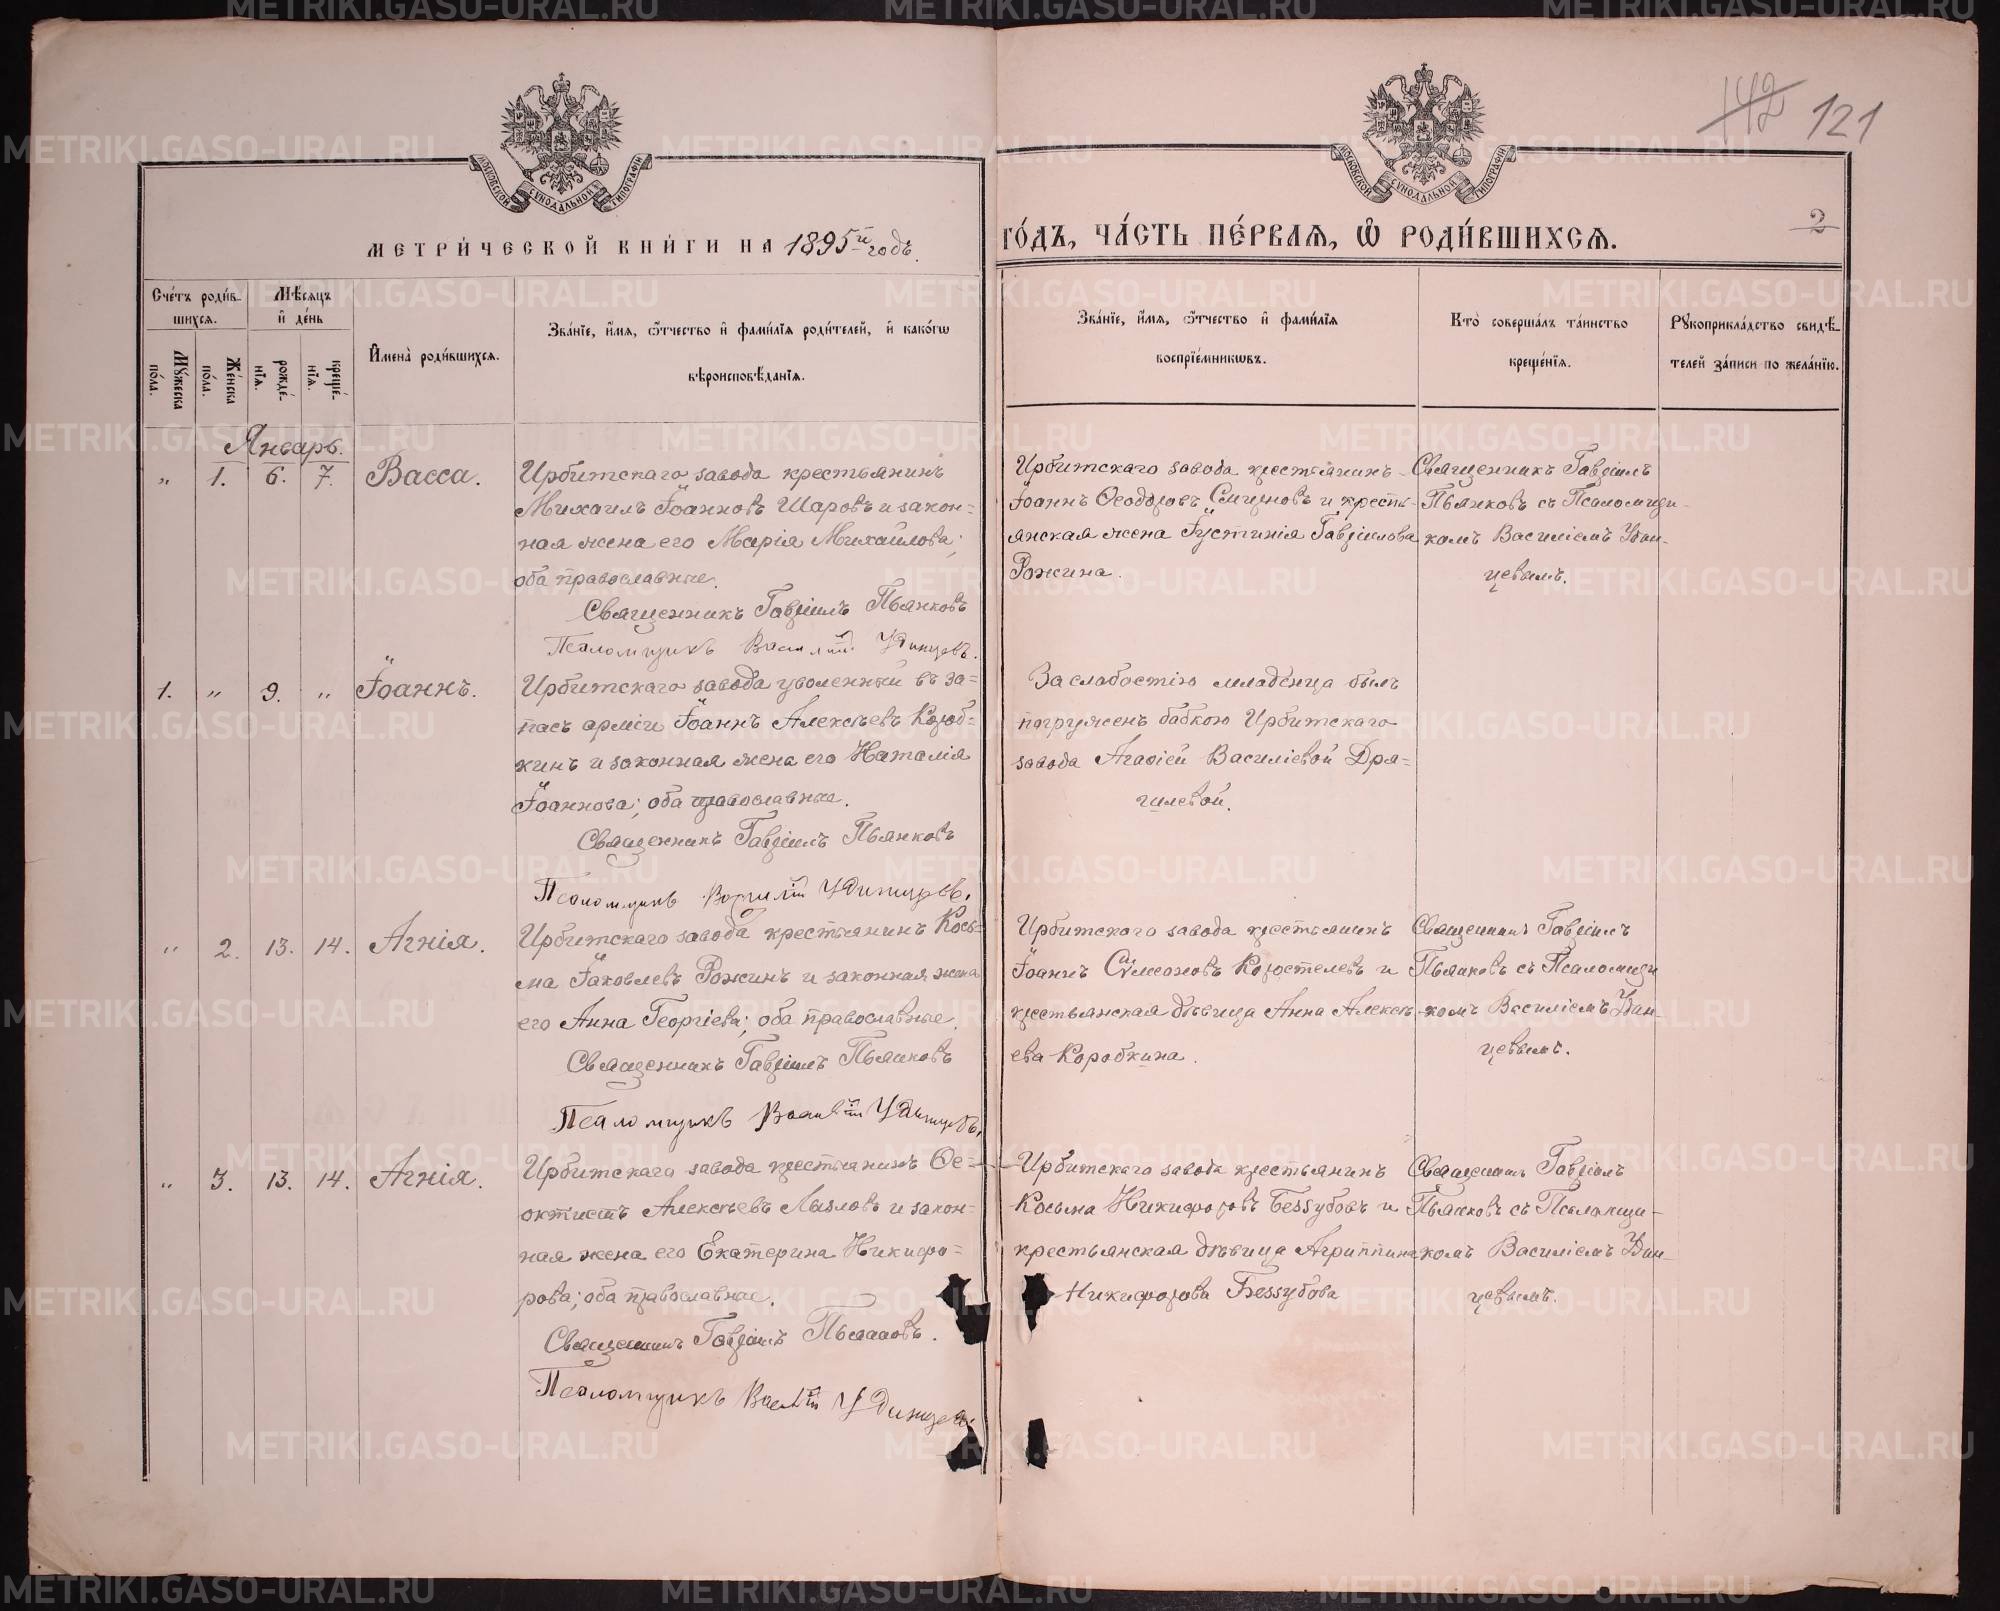 142 121
2
МОСКОВСКОЙ СѴНОДАЛЬНОЙ ТИПОГРАФІИ
МОСКОВСКОЙ СѴНОДАЛЬНОЙ ТИПОГРАФІИ
МЕТРИ́ЧЕСКОЙ КНИ́ГИ НА 1895й годъ.
ГО́ДЪ, ЧА́СТЬ ПЕ́РВАѦ, Ѡ҆ РОДИ́ВШИХСѦ.
Сче́тъ роди́в-
шихсѧ.
Мꙋ́жеска
по́ла.
Же́нска
по́ла.
Мѣ́сѧцъ
и҆ де́нь
рожде́-
нїѧ.
креще́-
нїѧ.
И҆мена̀ роди́вшихсѧ.
Зва́нїе, и҆́мѧ, ѻ҆́тчество и҆ фами́лїѧ роди́телей, и҆ како́гѡ
вѣроисповѣ́данїѧ.
Зва́нїе, и҆́мѧ, ѻ҆́тчество и҆ фами́лїѧ
воспрїе́мникѡвъ.
Кто̀ соверша́лъ та́инство
креще́нїѧ.
Рꙋкоприкла́дство свидѣ́-
телей за́писи по жела́нїю.
Январь.
" 1. 6. 7. Васса.
Ирбитскаго завода крестьянинъ
Михаилъ Іоанновъ Шаровъ и закон=
ная жена его Марія Михайлова;
оба православные.
Священникъ Гавріилъ Пьянковъ
Псаломщикъ Василій Удинцевъ.
Ирбитскаго завода крестьянинъ
Іоаннъ Ѳеодоровъ Смирновъ и кресть-
янская жена Іустинія Гавріилова
Рожина.
Священникъ Гавріилъ
Пьянковъ съ Псаломщи-
комъ Василіемъ Удин-
цевымъ.
1. " 9. " Іоаннъ.
Ирбитскаго завода уволенный въ за=
пасъ арміи Іоаннъ Алексѣевъ Короб=
кинъ и законная жена его Наталія
Іоаннова; оба православные.
Священникъ Гавріилъ Пьянковъ
Псаломщикъ Василій Удинцевъ.
За слабостію младенца былъ
погруженъ бабкою Ирбитскаго
завода Агафіей Василіевой Дря=
гилевой.
" 2. 13. 14. Агнія.
Ирбитскаго завода крестьянинъ Кось-
ма Іаковлевъ Рожинъ и законная жена
его Анна Георгіева; оба православные.
Священникъ Гавріилъ Пьянковъ
Псаломщикъ Василій Удинцевъ.
Ирбитского завода крестьянинъ
Іоаннъ Симеоновъ Коростелевъ и
крестьянская дѣвица Анна Алексѣ-
ева Коробкина.
Священникъ Гавріилъ
Пьянковъ съ Псаломщи
комъ Василіемъ Удин-
цевымъ.
" 3. 13. 14. Агнія.
Ирбитскаго завода крестьянинъ Ѳе=
октистъ Алексѣевъ Лызловъ и закон=
ная жена его Екатерина Никифо=
рова; оба православные.
Священникъ Гавріилъ Пьянковъ.
Псаломщикъ Василій Удинцевъ.
Ирбитскаго завода крестьянинъ
Косьма Никифоровъ Беззубовъ и
крестьянская дѣвица Агриппина
Никифорова Беззубова
Священникъ Гавріилъ
Пьянковъ съ Псаломщи-
комъ Василіемъ Удин-
цевымъ.
METRIKI.GASO-URAL.RU